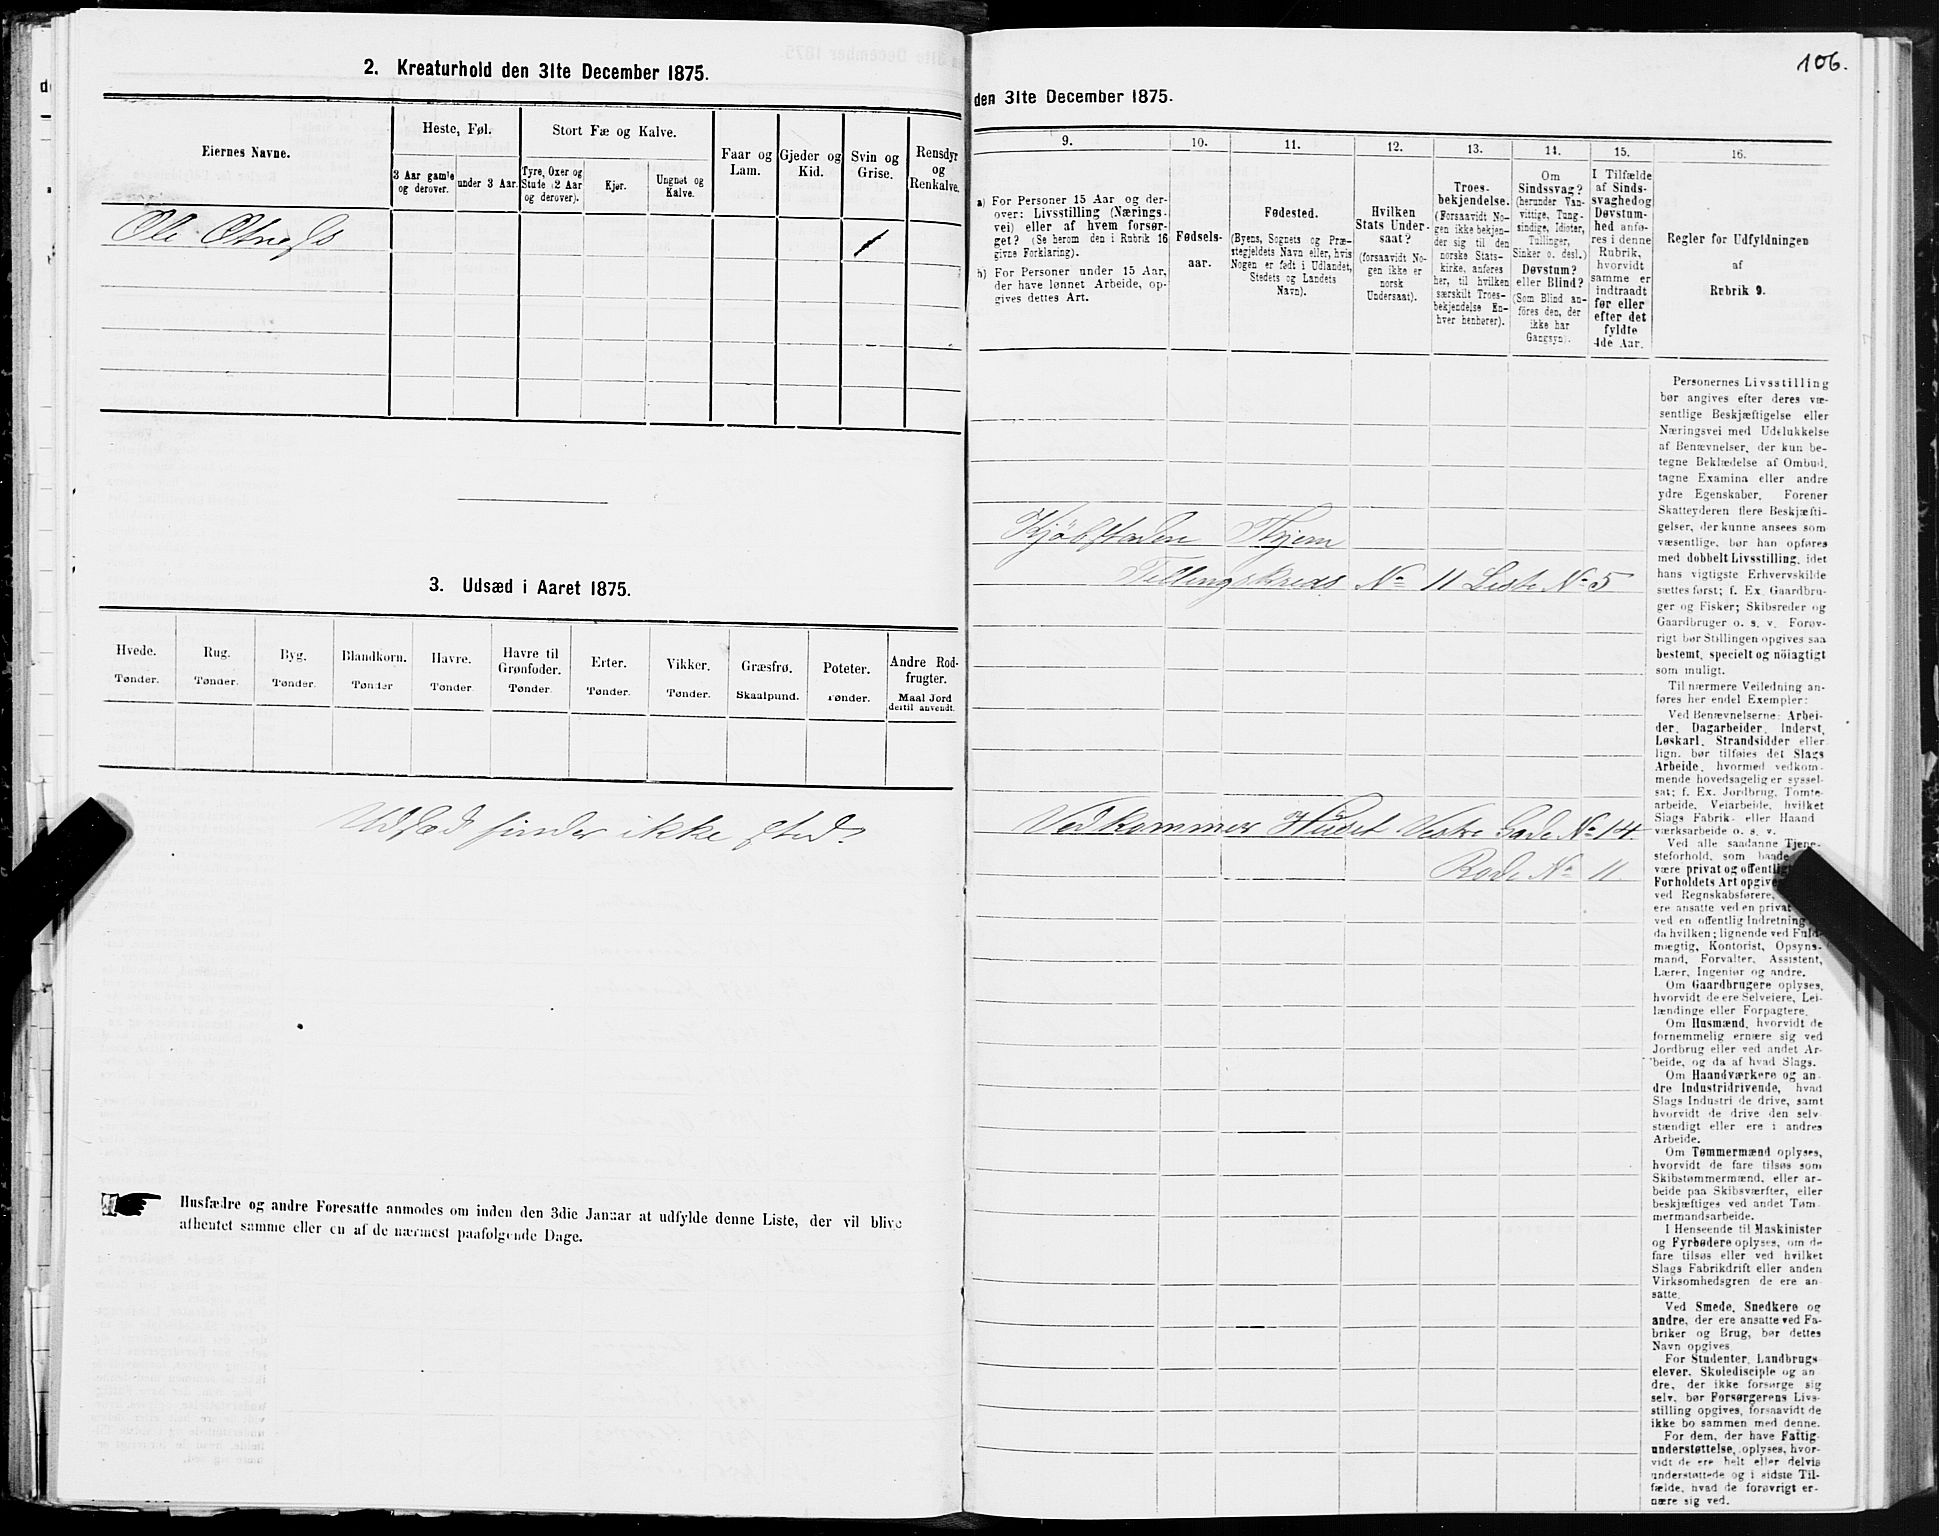 2. Kreaturhold den 31te December 1875.
Eiernes Navne.
Heste, Føl.
3 Aar gamle og derover.
under 3 Aar.
Stort Fæ og Kalve.
Tyre, Oxer og Stude (2 Aar og derover).
Kjør.
Ungnøt og Kalve.
Faar og Lam.
Gjeder og Kid.
Svin og Grise.
Rensdyr og Renkalve.
Ole
1
3. Udsæd i Aaret 1875.
Hvede. Tønder.
Rug. Tønder.
Byg. Tønder.
Blandkorn. Tønder
Havre. Tønder.
Havre til Grønfoder. Tønder.
Erter. Tønder.
Vikker. Tønder.
Græsfrø. Skaalpund.
Poteter. Tønder.
Andre Rodfrugter. Maal Jord dertil anvendt.
Udsæd finder ikke sted.
Husfædre og andre Foresatte anmodes om inden den 3die Januar at udfylde denne Liste, der vil blive
afhentet samme eller en af de nærmest paafølgende Dage.
106.
den 31te December 1875.
9.
10.
11.
12.
13.
14.
15.
16.
a) For Personer 15 Aar og der-
over: Livsstilling (Nærings-
vei) eller af hvem forsør-
get? (Se herom den i Rubrik 16
givne Forklaring).
b) For Personer under 15 Aar,
der have lønnet Arbeide, op-
gives dettes Art.
Fødsels-
aar.
Fødested.
(Byens, Sognets og Præ-
stegjeldets Navn eller, hvis
Nogen er født i Udlandet,
Stedets og Landets
Navn).
Hvilken
Stats Under-
saat?
(forsaavidt No-
gen ikke er
norsk
Undersaat).
Troes-
bekjendelse.
(Forsaavidt No-
gen ikke bekjen-
der sig til den
norske Stats-
kirke, anføres
her, til hvilken
særskilt Troes-
bekjendelse En-
hver henhører).
Om
Sindssvag?
(herunder Van-
vittige, Tung-
sindige, Idioter,
Tullinger,
Sinker o. desl.)
Døvstum?
eller Blind?
(Som Blind an-
føres den, der
ikke har
Gangsyn).
I Tilfælde
af Sinds-
svaghed og
Døvstum-
hed anfø-
res i denne
Rubrik,
hvorvidt
samme er
indtraadt
før eller
efter det
fyldte
4de Aar.
Regler for Udfyldningen
af
Rubrik 9.
Kjöbstaden Thjem
Tellingskreds No 11 Liste No 5
Vedkommer Huset Vestre Gade No 14.
Rode No 11.
Personernes Livsstilling
bør angives efter deres væ-
sentlige Beskjæftigelse eller
Næringsvei med Udelukkelse
af Benævnelser, der kun be-
tegne Beklædelse af Ombud,
tagne Examina eller andre
ydre Egenskaber. Forener
Skatteyderen flere Beskjæfti-
gelser, der kunne ansees som
væsentlige, bør han opføres
med dobbelt Livsstilling, idet
hans vigtigste Erhvervskilde
sættes først; f. Ex. Gaardbru-
ger og Fisker; Skibsreder og
Gaardbruger o. s. v. Forøv-
rigt bør Stillingen opgives saa
bestemt, specielt og nöiagtigt
som muligt.
Til nærmere Veiledning an-
føres her endel Exempler:
Ved Benævnelserne: Arbei-
der, Dagarbeider, Inderst,
Løskarl, Strandsidder eller
lign. bør tilføies det Slags
Arbeide, hvormed vedkom-
mende hovedsagelig er syssel-
sat; f. Ex. Jordbrug, Tomte-
arbeide, Veiarbeide, hvilket
Slags Fabrik- eller Haand
værksarbeide o. s. v.
Ved alle saadanne Tjene-
steforhold, som baade
være privat og offentlig
Forholdets Art opgive
ved Regnskabsførere,
ere ansatte ved en privat
ved en offentlig Indretning
da hvilken; lignende ved Fuld-
mægtig, Kontorist, Opsyns-
mand, Forvalter, Assistent,
Lærer, Ingeniør og andre.
Om Gaardbrugere oplyses,
hvorvidt de ere Selveiere, Lei-
lændinge eller Forpagtere.
Om Husmænd, hvorvidt de
fornemmelig ernære sig ved
Jordbrug eller ved andet Ar-
beide, og da af hvad Slags.
Om Haandværkere og an-
dre Industridrivende, hvad
Slags Industri de drive, samt
hvorvidt de drive den selv-
stændigt eller ere i andres
Arbeide.
Om Tømmermænd oplyses,
hvorvidt de fare tilsøs som
Skibstømmermænd, eller ar-
beide paa Skibsværfter, eller
beskjæftiges ved andet Tøm-
mermandsarbeide.
I Henseende til Maskinister
og Fyrbødere oplyses, om de
fare tilsøs eller ved hvilket
Slags Fabrikdrift eller anden
Virksomhedsgren de ere an-
satte.
Ved Smede, Snedkere og
andre, der ere ansatte ved Fa-
briker og Brug, bør dettes
Navn opgives.
For Studenter, Landbrugs-
elever, Skoledisciple og an-
dre, der ikke forsørge sig
selv, bør Forsørgerens Livs-
stilling opgives, forsaavidt de
ikke bo sammen med denne.
For dem, der have Fattig-
understøttelse, oplyses, hvor-
vidt de ere helt eller delvis
understøttede og i sidste Til-
fælde, hvad de forøvrigt er-
nære sig ved.